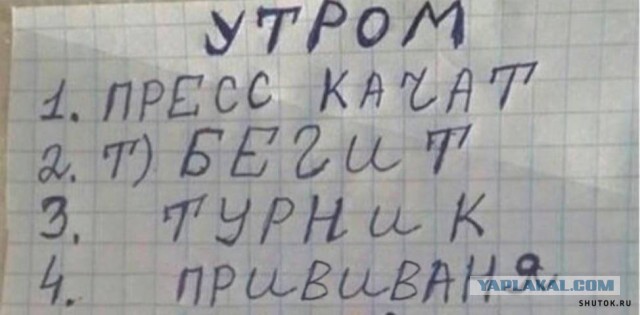 УТРОМ
1. ПРЕСС КАЧАТ
2. Т) БЕГИТ
3. ТУРНИК
4. ПРИВИВАНЯ
YAPLAKAL.COM
SHUTOK.RU